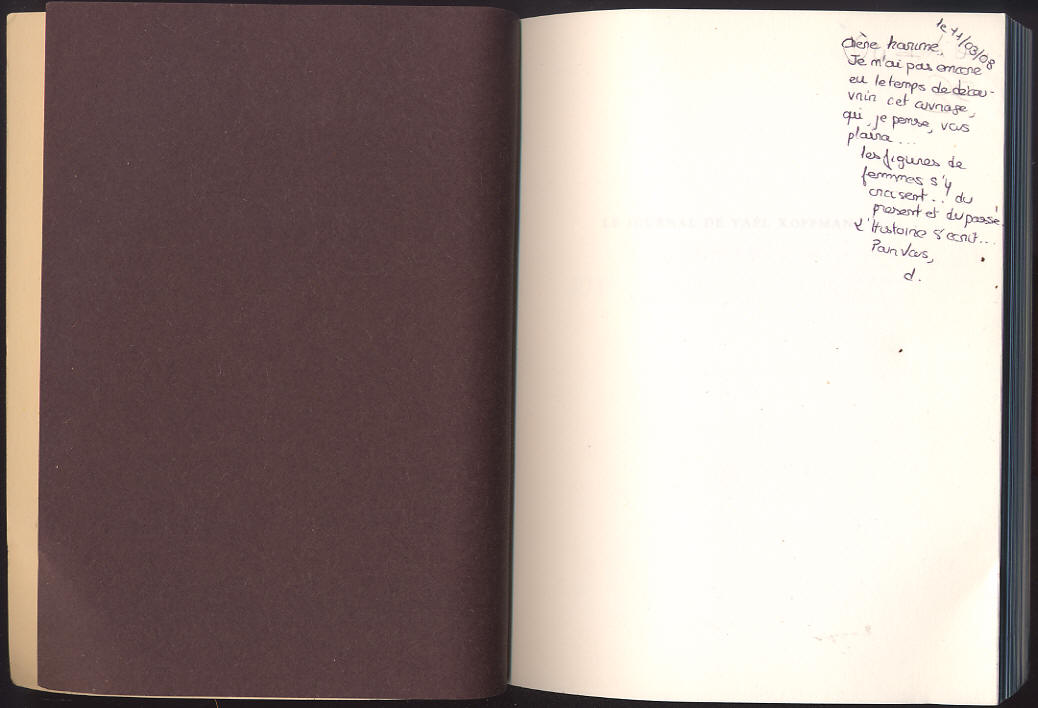 le 11/03/08
Chère karine,
Je n'ai pas encore
eu le temps de décou-
vrir cet ouvrage,
qui, je pense, vous
plaira...
les figures de
femmes s'y
croisent... du
présent et du passé.
L'Histoire s'écrit...
Pour Vous,
d.
LE JOURNAL DE YAËL KOPPMAN